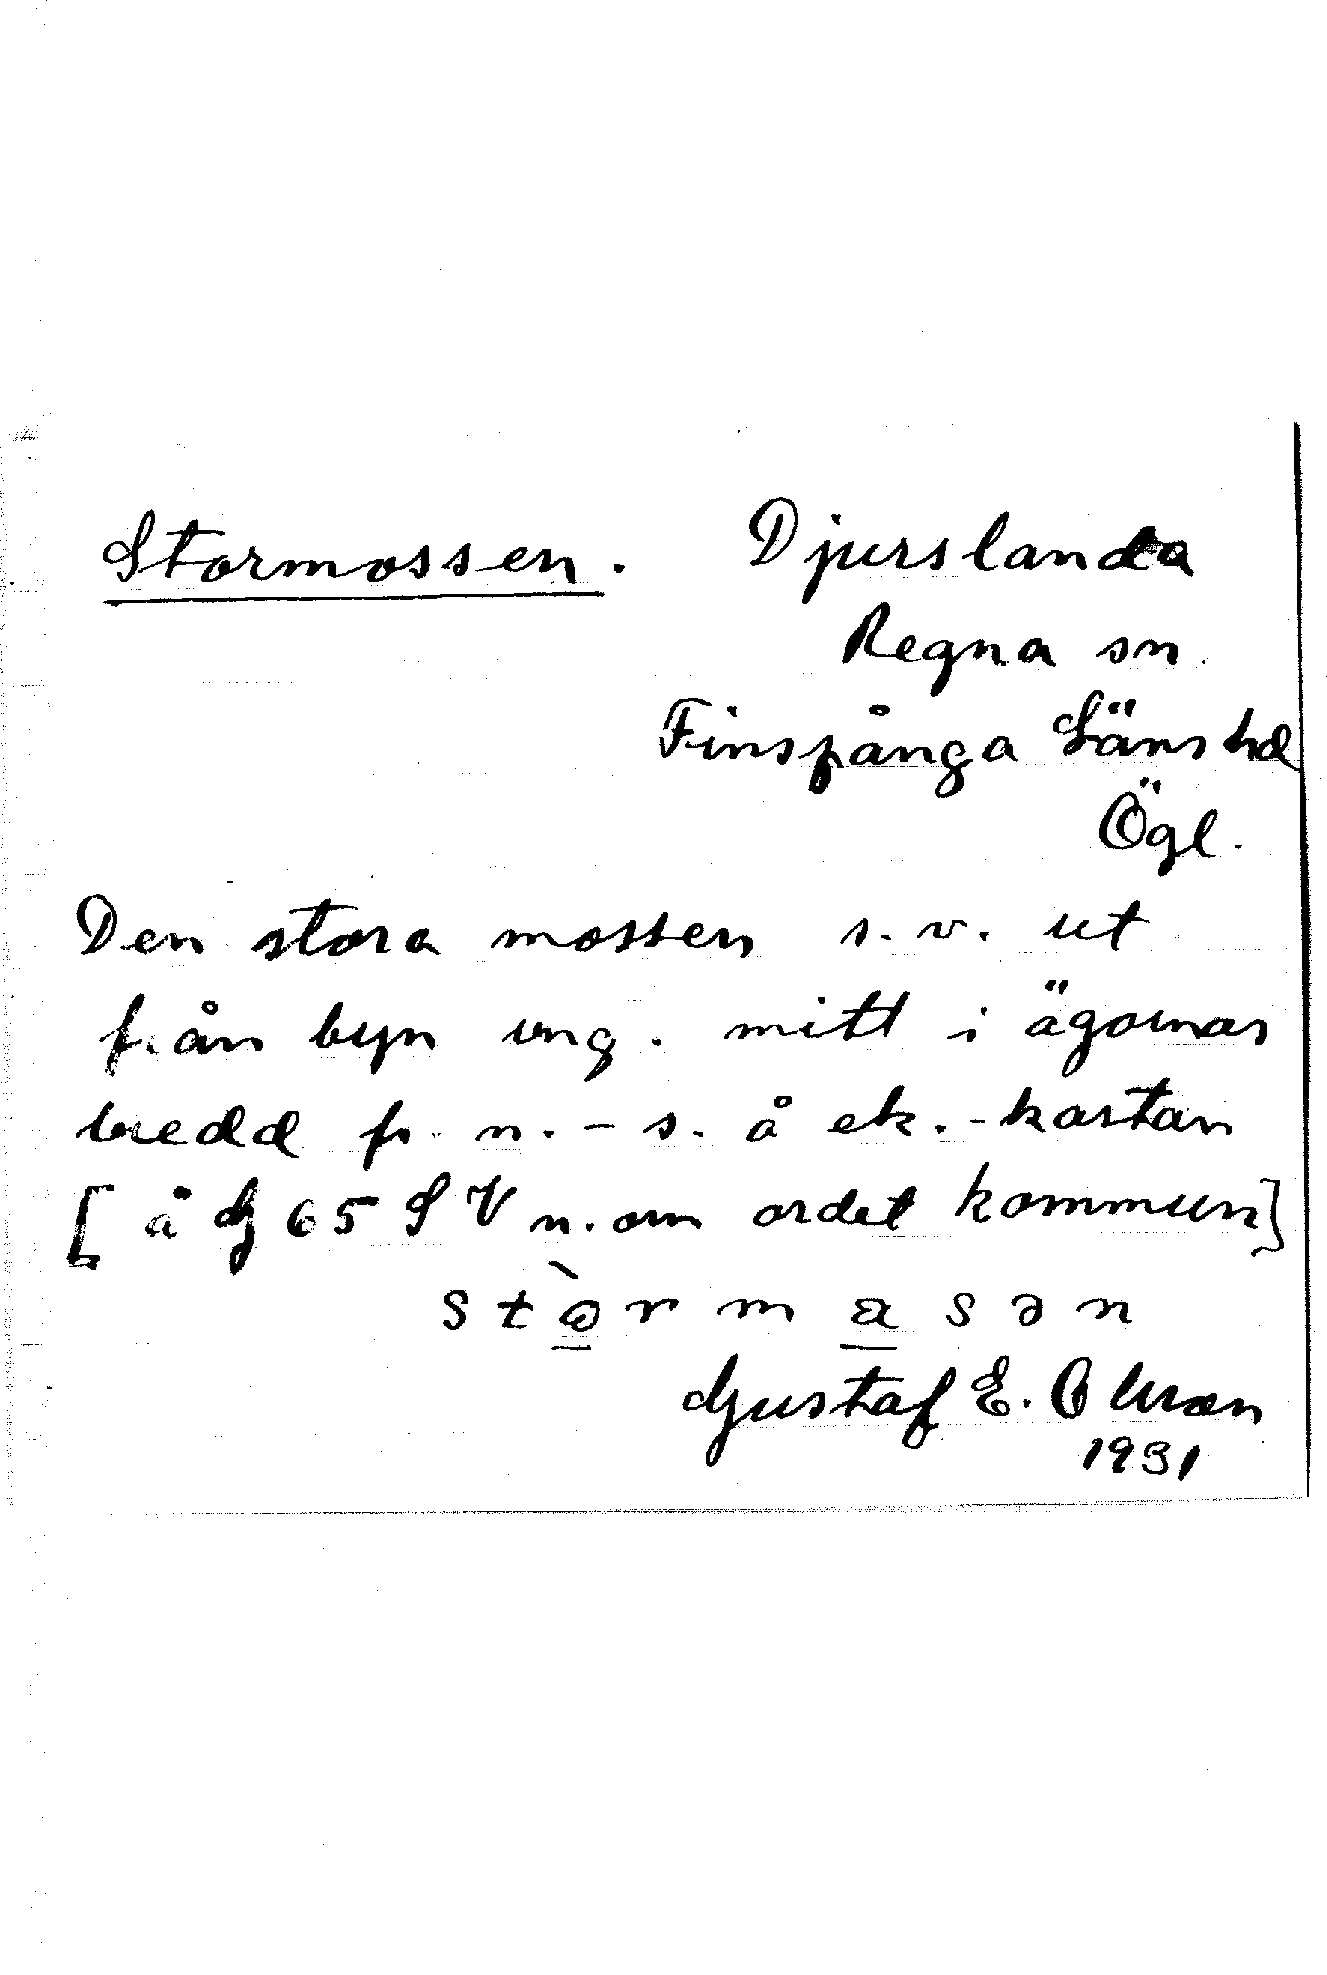 Stormossen. Djurslanda
Regna sn.
Finspånga Läns hd
Ögl.
Den stora mossen s.v. ut
från byn ung. mitt i ägornas
bredd fr. n. - s. å ek.-kartan
[å G 65 S V n. om ordet kommun]
Gustaf E. Olsson
1931